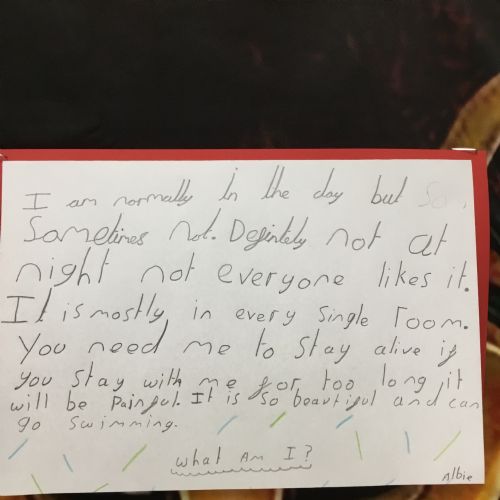 I am normally in the day but So
Sometimes not. Definitely not at
night not everyone likes it.
It is mostly in every single room.
You need me to stay alive if
you stay with me for too long it
will be painful. It is so beautiful and can
go swimming.
what Am I?
Albie